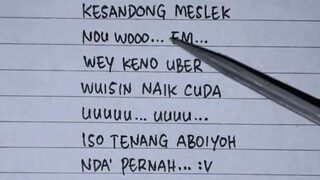 KESANDONG MESLEK
NOU WOOO... EM...
WEY KENO UBER
WUISIN NAIK CUDA
UUUUU... UUUU...
ISO TENANG ABOIYOH
NDA' PERNAH... :V